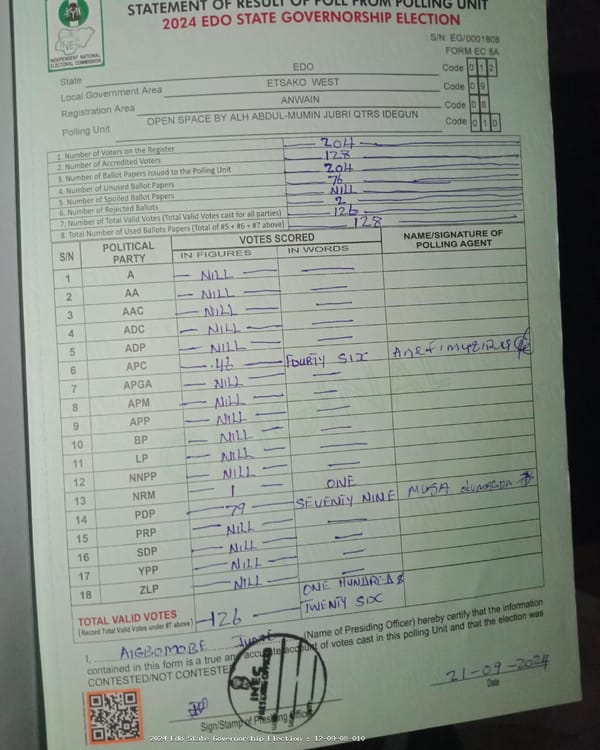 STATEMENT OF RESULT OF POLL FROM POLLING UNIT
2024 EDO STATE GOVERNORSHIP ELECTION
INDEPENDENT NATIONAL ELECTORAL COMMISSION
S/N: EG/0001808
FORM EC 8A
State EDO Code 0 1 2
Local Government Area ETSAKO WEST Code 0 9
Registration Area ANWAIN Code 0 8
Polling Unit OPEN SPACE BY ALH ABDUL-MUMIN JUBRI QTRS IDEGUN Code 0 1 0
1. Number of Voters on the Register 204
2. Number of Accredited Voters 128
3. Number of Ballot Papers Issued to the Polling Unit 204
4. Number of Unused Ballot Papers 76
5. Number of Spoiled Ballot Papers NILL
6. Number of Rejected Ballots 2
7. Number of Total Valid Votes (Total Valid Votes cast for all parties) 126
8. Total Number of Used Ballots Papers (Total of #5 + #6 + #7 above) 128
S/N POLITICAL PARTY VOTES SCORED NAME/SIGNATURE OF POLLING AGENT
IN FIGURES IN WORDS
1 A NILL
2 AA NILL
3 AAC NILL
4 ADC NILL
5 ADP NILL
6 APC 46 FOURTY SIX
7 APGA NILL
8 APM NILL
9 APP NILL
10 BP NILL
11 LP NILL
12 NNPP NILL
13 NRM 1 ONE
14 PDP 79 SEVENTY NINE MUSA
15 PRP NILL
16 SDP NILL
17 YPP NILL
18 ZLP NILL
TOTAL VALID VOTES 126 ONE HUNDRED & TWENTY SIX
(Record Total Valid Votes under #7 above)
I, AIGBOMOBE (Name of Presiding Officer) hereby certify that the information
contained in this form is a true and accurate account of votes cast in this polling unit and that the election was
CONTESTED/NOT CONTESTED
INEC
21-09-2024
Date
Sign/Stamp of Presiding Officer
2024 Edo State Governorship Election : 12-09-08-010